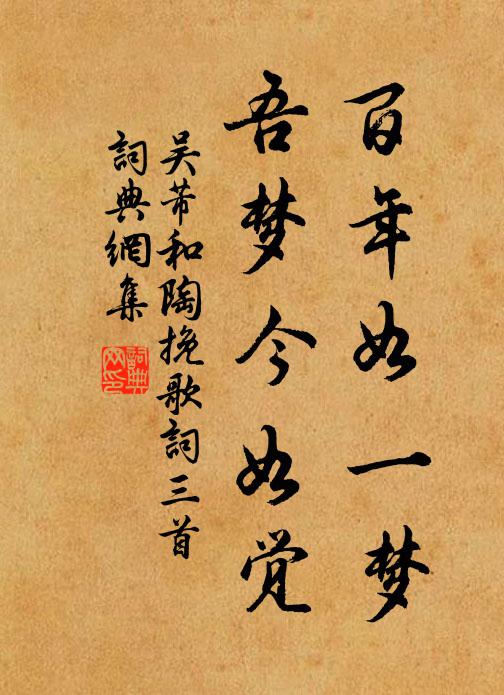 百年如一梦
吾梦今如觉
吴芾和陶挽歌詞三首
詞典網集
詞典網印